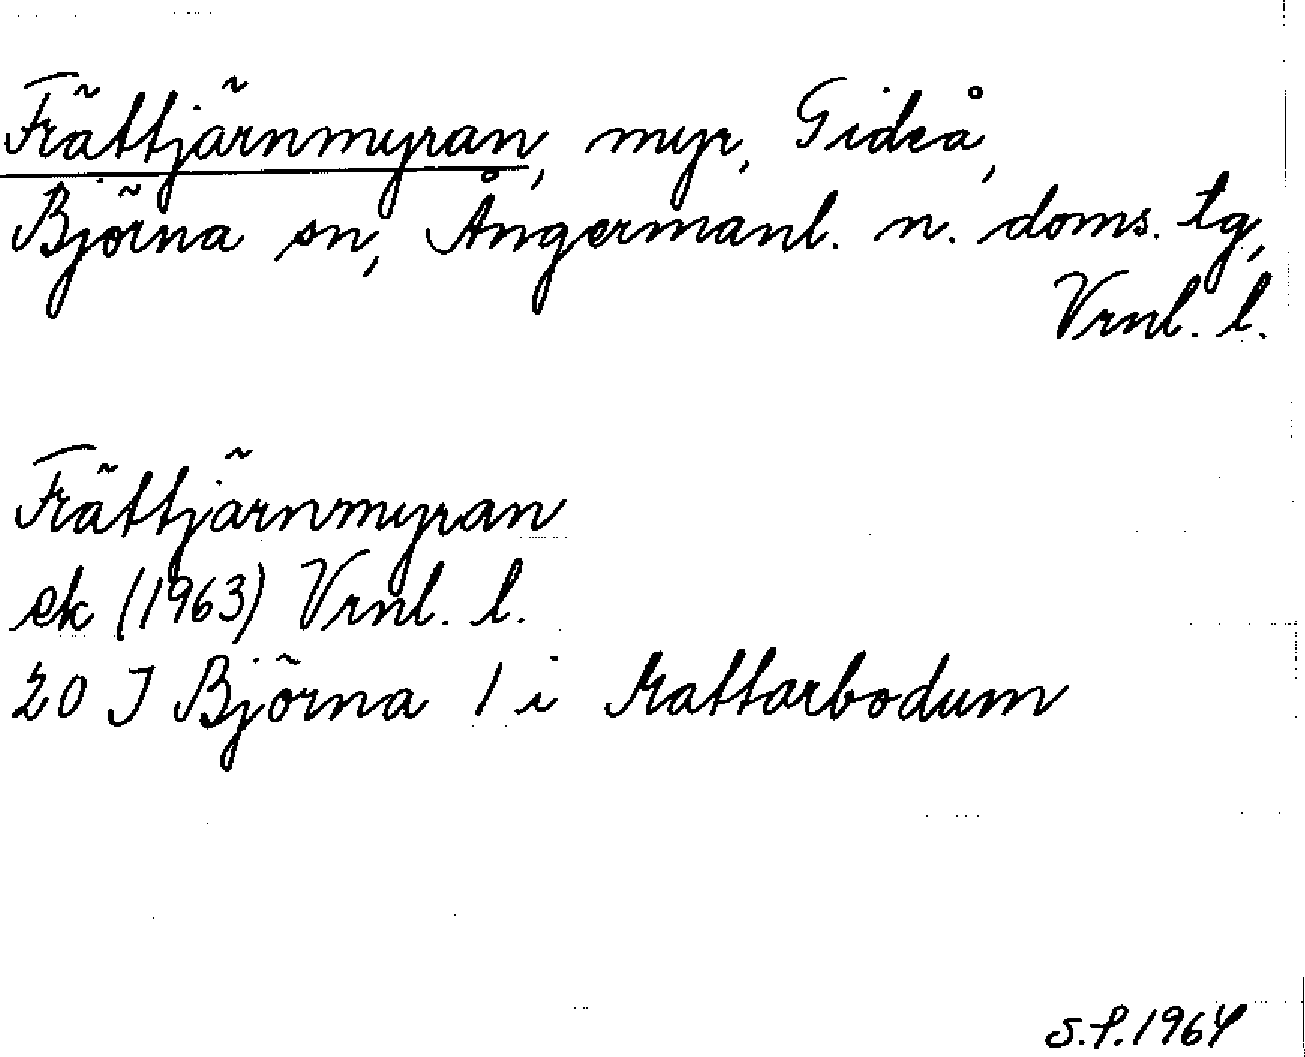 Frättjärnmyran, myr, Gideå,
Björna sn, Ångermanl. n. doms. tg,
Vrnl. l.
Frättjärnmyran
ek (1963) Vrnl. l.
20 J Björna 1 i Mattarbodum
S.P. 1964